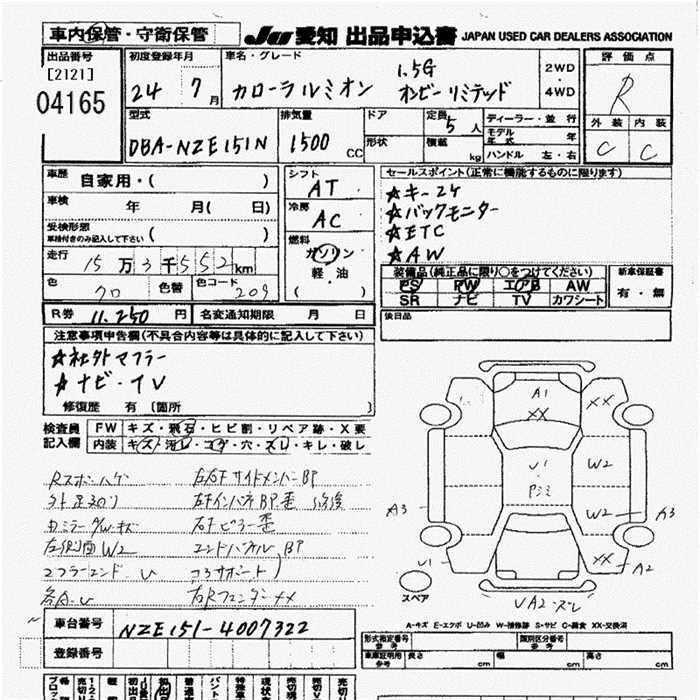 車内保管・守衛保管
JU 愛知 出品申込書 JAPAN USED CAR DEALERS ASSOCIATION
出品番号
[2121]
04165
初度登録年月
24 7 月
車名・グレード
カローラルミオン 1.5G
オンビーリミテッド
2WD
・
4WD
評価点
R
外装 内装
C C
型式
DBA-NZE151N
排気量
1500 CC
ドア
形状
定員 5 人
積載 kg
ディーラー・並行
モデル年式 年
ハンドル 左・右
車歴 自家用・( )
車検 年 月( 日)
受検形態
車検付きのみ記入して下さい ( )
走行 15万3千552km
色 クロ 色替 色コード 209
シフト AT
冷房 AC
燃料
ガソリン
軽・油
( )
セールスポイント(正常に機能するものに限ります)
★キー2ケ
★バックモニター
★ETC
★AW
装備品(純正品に限り○をつけてください)
PS PW エアB AW
SR ナビ TV カワシート
新車保証書
有・無
R券 11,250 円 名変通知期限 月 日
後日品
注意事項申告欄(不具合内容等は具体的に記入して下さい)
★社外マフラー
★ナビ・TV
修復歴 有〔箇所 〕
検査員記入欄
FW キズ・飛石・ヒビ割・リペア跡・X要
内装 キズ・汚レ・コゲ・穴・スレ・キレ・破レ
Rスポハゲ 左右Fサイドメンバー BP
左F インパネ BP歪 修後
カミラーグリルキズ 右Fピラー歪
左側面W2 エンドパネル BP
マフラーエンド U コアサポート
各A.U 右Rフェンダー XX
A1
XX
XX
U1
Pシミ
W2
W2
A3
A3
U1
XX
A2
UA2・ズレ
スペア
A-キズ E-エクボ U-凹み W-補修跡 S-サビ C-腐食 XX-交換済
車台番号 NZE151-4007322
登録番号
形式指定番号 参考
類別区分番号 参考
車庫証明用 参考 長さ cm 幅 cm 高さ cm